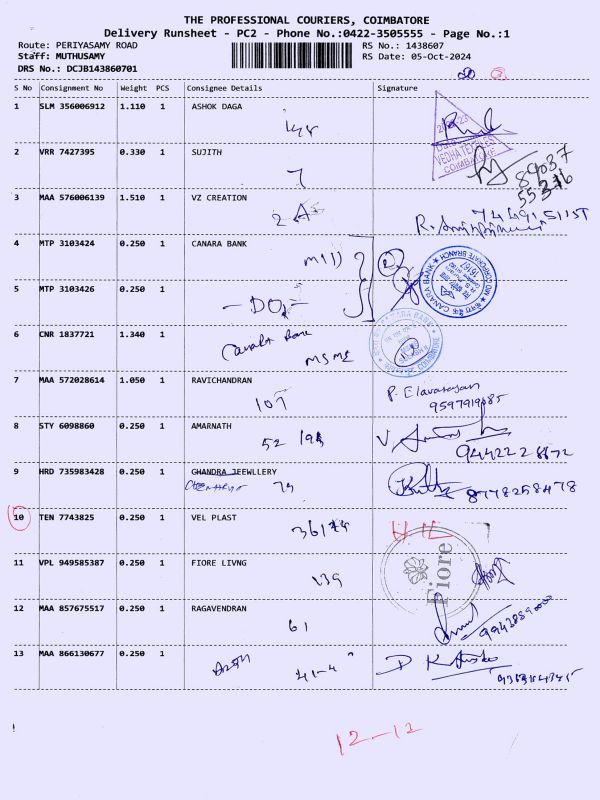 THE PROFESSIONAL COURIERS, COIMBATORE
Delivery Runsheet - PC2 - Phone No.:0422-3505555 - Page No.:1
Route: PERIYASAMY ROAD RS No.: 1438607
Staff: MUTHUSAMY RS Date: 05-Oct-2024
DRS No.: DCJB143860701
S No Consignment No Weight PCS Consignee Details Signature
1 SLM 356006912 1.110 1 ASHOK DAGA
148
VEDHA TEXTILES
COIMBATORE
2 VRR 7427395 0.330 1 SUJITH
7
3 MAA 576006139 1.510 1 VZ CREATION
4 MTP 3103424 0.250 1 CANARA BANK
CANARA BANK
CORPORATE BRANCH
5 MTP 3103426 0.250 1
- DO -
6 CNR 1837721 1.340 1
Canara Bank
MSME
7 MAA 572028614 1.050 1 RAVICHANDRAN
107
P. Elavarasan
8 STY 6098860 0.250 1 AMARNATH
52
9 HRD 735983428 0.250 1 CHANDRA JEEWLLERY
74 8778258478
10 TEN 7743825 0.250 1 VEL PLAST
11 VPL 949585387 0.250 1 FIORE LIVNG
139
Fiore
12 MAA 857675517 0.250 1 RAGAVENDRAN
61
13 MAA 866130677 0.250 1
12-12